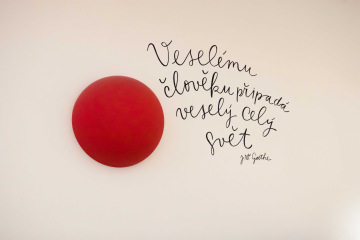 Veselému
člověku připadá
veselý celý
svět
JW Goethe